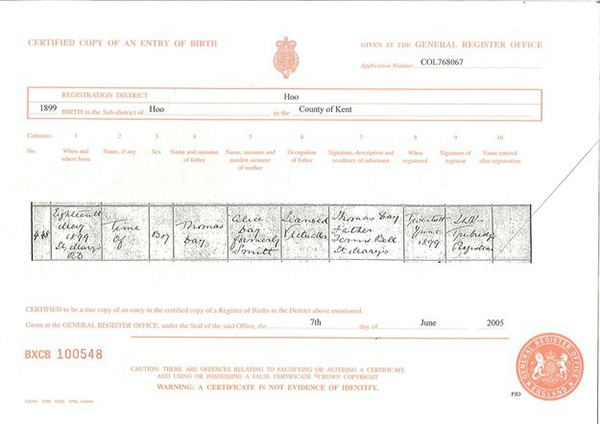 CERTIFIED COPY OF AN ENTRY OF BIRTH
GIVEN AT THE GENERAL REGISTER OFFICE
Application Number COL768067
REGISTRATION DISTRICT Hoo
1899 BIRTH in the Sub-district of Hoo in the County of Kent
Columns:- 1 2 3 4 5 6 7 8 9 10
No. When and where born Name, if any Sex Name and surname of father Name, surname and maiden surname of mother Occupation of father Signature, description and residence of informant When registered Signature of registrar Name entered after registration
Eighteenth May 1899 St Mary's
Time Of
Boy
Thomas Day
Alice Day formerly Smith
Licensed Victualler
Thomas Day Father Bell St Mary's
June 1899
Registrar
CERTIFIED to be a true copy of an entry in the certified copy of a Register of Births in the District above mentioned.
Given at the GENERAL REGISTER OFFICE, under the Seal of the said Office, the 7th day of June 2005
BXCB 100548
CAUTION: THERE ARE OFFENCES RELATING TO FALSIFYING OR ALTERING A CERTIFICATE
AND USING OR POSSESSING A FALSE CERTIFICATE ©CROWN COPYRIGHT
WARNING: A CERTIFICATE IS NOT EVIDENCE OF IDENTITY.
GENERAL REGISTER OFFICE
ENGLAND
PJO